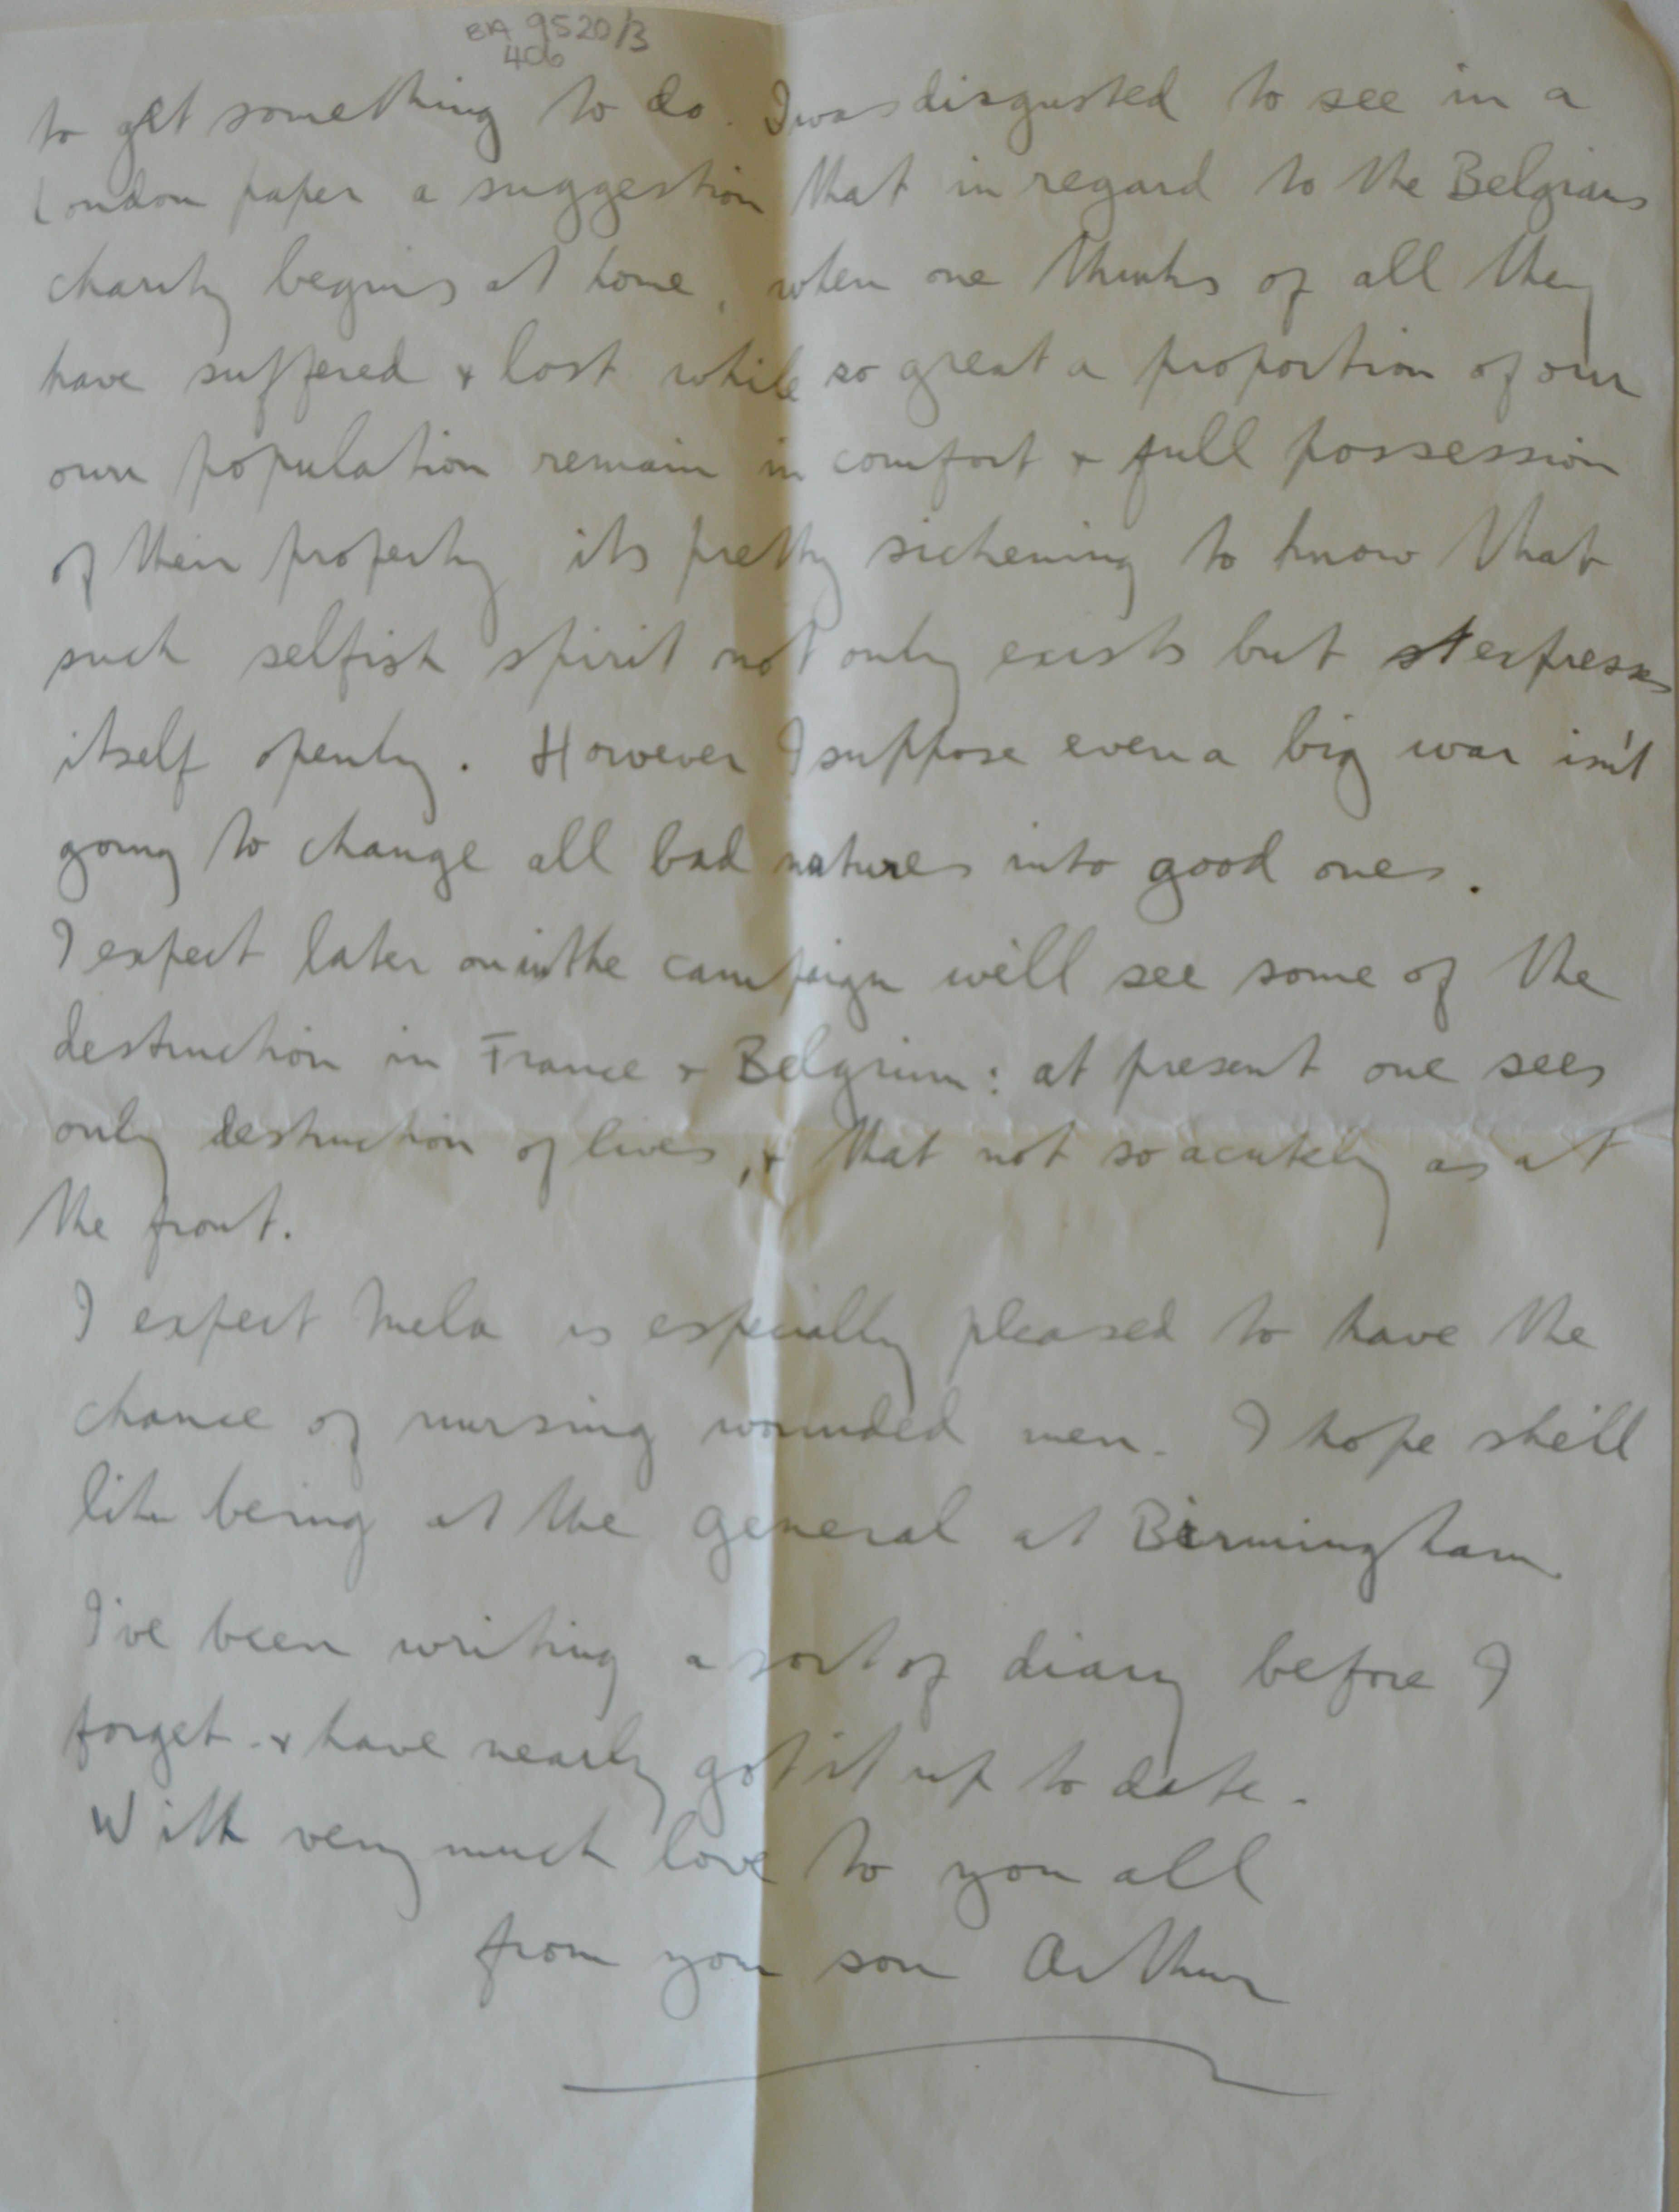 BA 9520/3
406
to get something to do. I was disgusted to see in a
London paper a suggestion that in regard to the Belgians
charity begins at home, when one thinks of all they
have suffered & lost while so great a proportion of our
own population remain in comfort & full possession
of their property its pretty sickening to know that
such selfish spirit not only exists but expresses
itself openly. However I suppose even a big war isn't
going to change all bad natures into good ones.
I expect later on in the campaign we'll see some of the
destruction in France & Belgium: at present one sees
only destruction of lives, & that not so acutely as at
the front.
I expect Mela is especially pleased to have the
chance of nursing wounded men. I hope she'll
like being at the general at Birmingham
I've been writing a sort of diary before I
forget. & have nearly got it up to date.
With very much love to you all
from your son Arthur